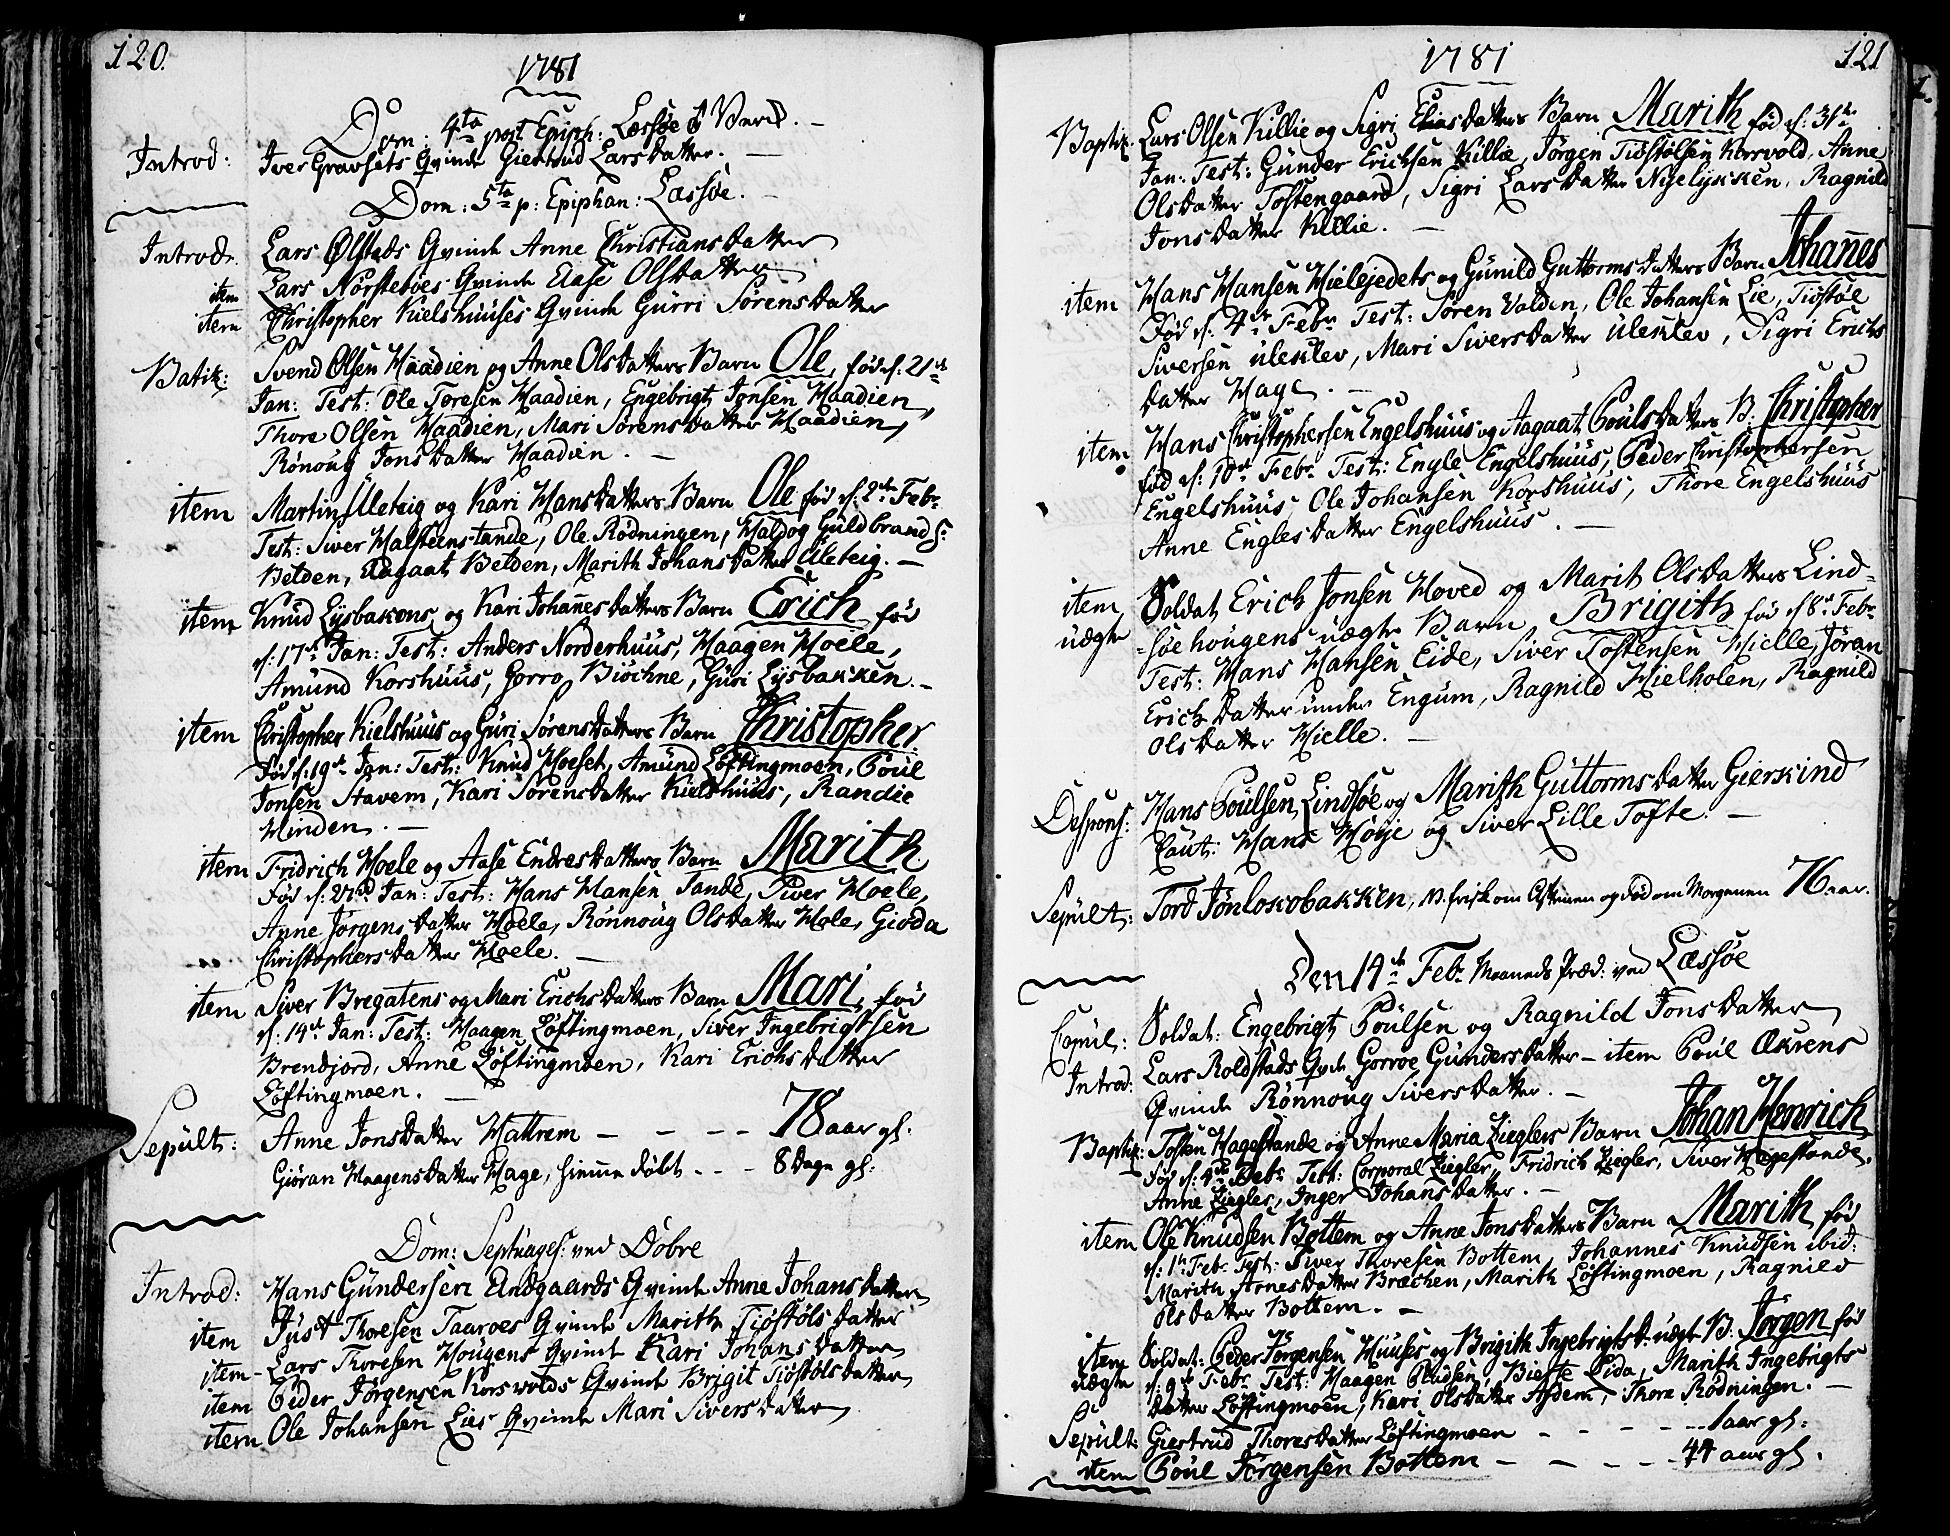 120.
1781
Dom: 4ta post Epiph: Læssøe &
Introd: Iver Gravsets Qvinde Giertrud Larsdatter. —
Dom: 5ta p: Epiphan: Læssøe.
Introd: Lars Ølstads Qvinde Anne Christiansdatter
item Lars Norstebøes Qvinde Aase Olsdatter
item Christopher Kielshuuses Qvinde Gurri Sørensdatter
Batiz: Svend Olsen Haadien og Anne Olsdatters Barn Ole, fød d: 21de
Jan: Test: Ole Toresen Haadien, Engebrigt Jonsen Haadien,
Thore Olsen Haadien, Mari Sørensdatter Haadien,
Rønoug Jonsdatter Haadien. —
item Martin Uleteig og Kari Hansdatters Barn Ole fød d: 2den Febr.
Test: Siver Halsteenstande, Ole Rødningen, Haldog Guldbrands:
Belden, Aagaat Belden, Marith Johansdatter Uleteig. —
item Knud Lysbakens og Kari Johannesdatters Barn Erich fød
d: 17de Jan: Test: Anders Norderhuus, Haagen Hoele,
Amund Korshuus, Gorro Biøchne, Guri Lysbakken. —
item Christopher Kielshuus og Guri Sørensdatters Barn Christopher
fød d: 19de Jan: Test: Knud Hoeset, Amund Løftingmoen, Poul
Jonsen Stavem, Kari Sørensdatter Kielshuus, Randie
Hinden. —
item Fridrich Hoele og Aase Endresdatters Barn Marith
fød d: 22nd Jan: Test: Hans Hansen Tande, Siver Hoele,
Anne Jørgensdatter Hoele, Rønnoug Olsdatter Hole, Gioda
Christophersdatter Hoele. —
item Siver Bregatens og Mari Erichsdatters Barn Mari, fød
d: 14de Jan: Test: Haagen Løftingmoen, Siver Ingebrigtsen
Brendjord, Anne Løftingmoen, Kari Erichsdatter
Løftingmoen. —
Sepult: Anne Jonsdatter Hattrem — — — — 78 aar gl.
Giøran Haagensdatter Hage, hiemme døbt - - - 8 Dage gl:
Dom: Septuages: ved Dobre
Introd: Hans Gundersen Andgaards Qvinde Anne Johansdatter
item Just Thoresen Taaroes Qvinde Marithe Tiøstølsdatter
item Lars Thoresen Hougens Qvinde Kari Johansdatter
item Peder Jørgensen Korsvolds Qvinde Brigit Tiøstølsdatter
item Ole Johansen Lies Qvinde Mari Siversdatter
1781
121
Baptiz: Lars Olsen Killie og Sigri Eliasdatters Barn Marith fød d: 31te
Jan: Test: Gunder Erichsen Killie, Jørgen Tiøstølsen Korsvold, Anne
Olsdatter Tostengaard, Sigri Larsdatter Nyelykken, Ragnild
Jonsdatter Killie. —
item Hans Hansen Hielejedets og Gunild Guttormsdatters Barn Johannes
fød d: 4de Febr. Test: Søren Valden, Ole Johansen Lie, Tiøstøl
Siversen Uleklev, Mari Siversdatter Uleklev, Sigri Erichs
datter Hage. —
item Hans Christophersen Engelshuus og Aagaat Poulsdatters B. Christopher
fød d: 10de Febr. Test: Engle Engelshuus, Peder Christophersen
Engelshuus, Ole Johansen Korshuus, Thore Engelshuus
Anne Englesdatter Engelshuus. —
item Soldat Erich Jonsen Hoved og Marit Olsdatters Lind-
uægte søehougens uægte Barn Brigith fød d 8de Febr.
Test: Hans Hansen Eide, Siver Tostensen Hielle, Jøran
Erichsdatter under Engum, Ragnild Hielholen, Ragnild
Olsdatter Hielle. —
Despons: Hans Poulsen Lindsøe og Marith Guttormsdatter Gierskind
Caut: Hans Høye og Siver Lille Tofte. —
Sepult: Tord Jonloskobakken, N. frisk om Aftenen og død om Morgenen 76 aar.
Den 14de Febr. Maaneds Præd: ved Læssøe
Copul: Soldat: Engebrigt Poulsen og Ragnild Jonsdatter
Introd: Lars Roldstads Qvde Gorroe Gundersdatter — item Poul Økrens
Qvinde Rønnoug Siversdatter. —
Baptiz: Tosten Hagestande og Anne Maria Zieglers Barn Johan Henrich
Test: Corporal Ziegler, Fridrich Ziegler, Siver Hagestande,
Anne Ziegler, Inger Johansdatter. —
item Ole Knudsen Bottem og Anne Jonsdatters Barn Marith fød
d: 1te Febr. Test: Siver Thoresen Bottem, Johannes Knudsen ibid:
Marith Arnesdatter Bræchen, Marith Løftingmoen, Ragnild
Olsdatter Bottem. —
item Soldat: Peder Jørgensen Huuses og Brigith Ingebrigtsd. uægte B. Jørgen fød
uægte d: 9de Febr. Test: Haagen Paulsen, Lida, Marith Ingebrigts
datter Løftingmoen, Kari Olsdatter Thore Rødningen. —
Sepult: Giertrud Thoresdatter Løftingmoen - - - - - - 1 aar gl:
item Poul Jørgensen Bottem — — — — — 44 aar gl.